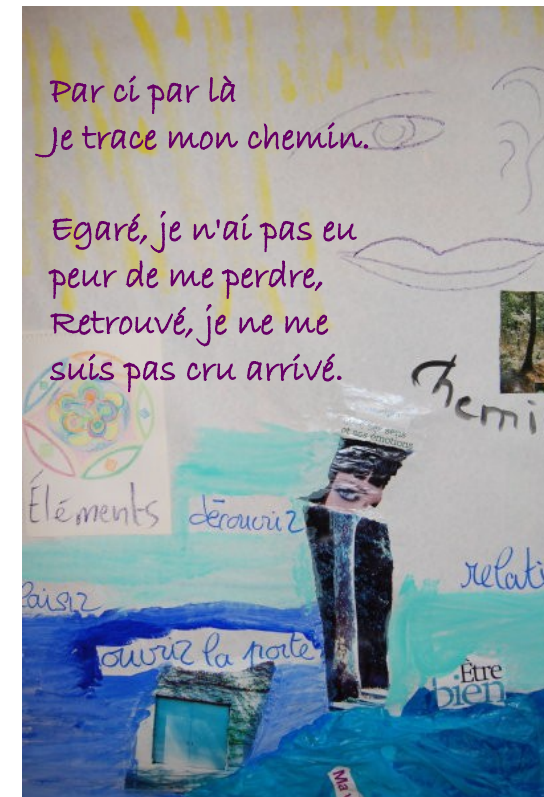 Par ci par là
Je trace mon chemin.
Egaré, je n'ai pas eu
peur de me perdre,
Retrouvé, je ne me
suis pas cru arrivé.
Chemi
et ses émotions
Éléments
découvrir
relati
laisir
ouvrir la porte
Être
bien
Ma